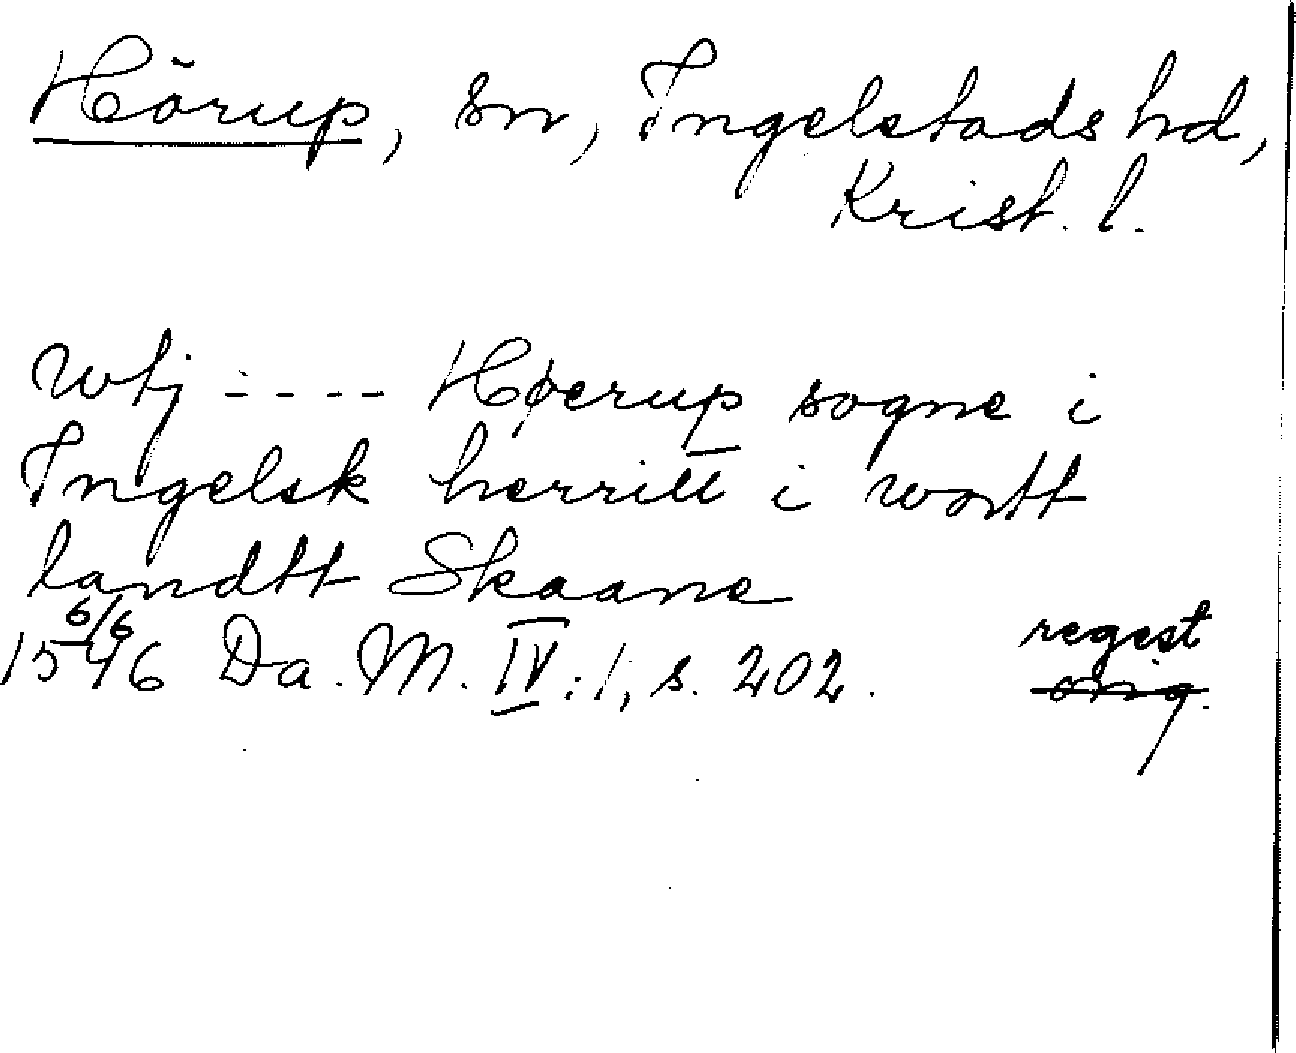 Hörup, sn, Ingelstads hd,
Krist. l.
Wtj - - - - Høerup sogne i
Ingelsk herritt i wortt
landtt Skaane
6/6
1546 Da. M. IV: 1, s. 202.
regest
orig.